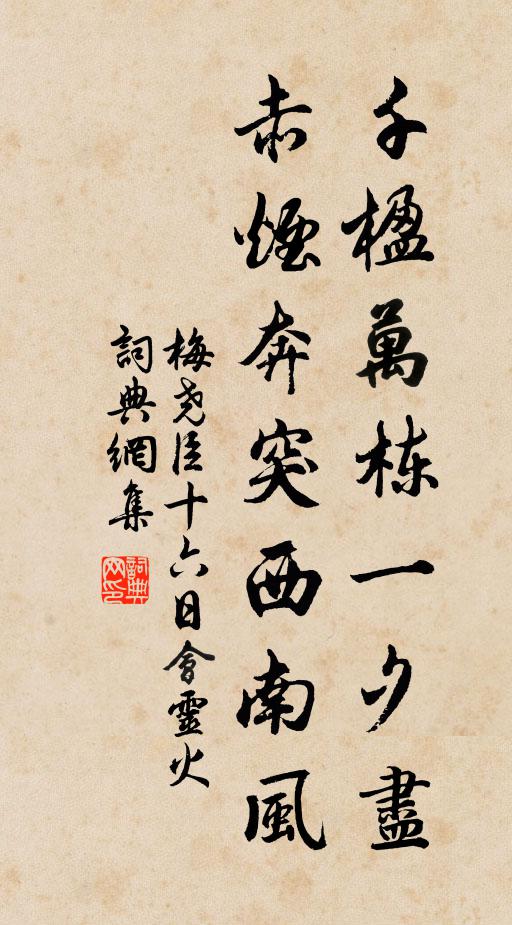 千楹萬栋一夕盡
赤煙奔突西南風
梅尧臣十六日會靈火
詞典網集
詞典网印